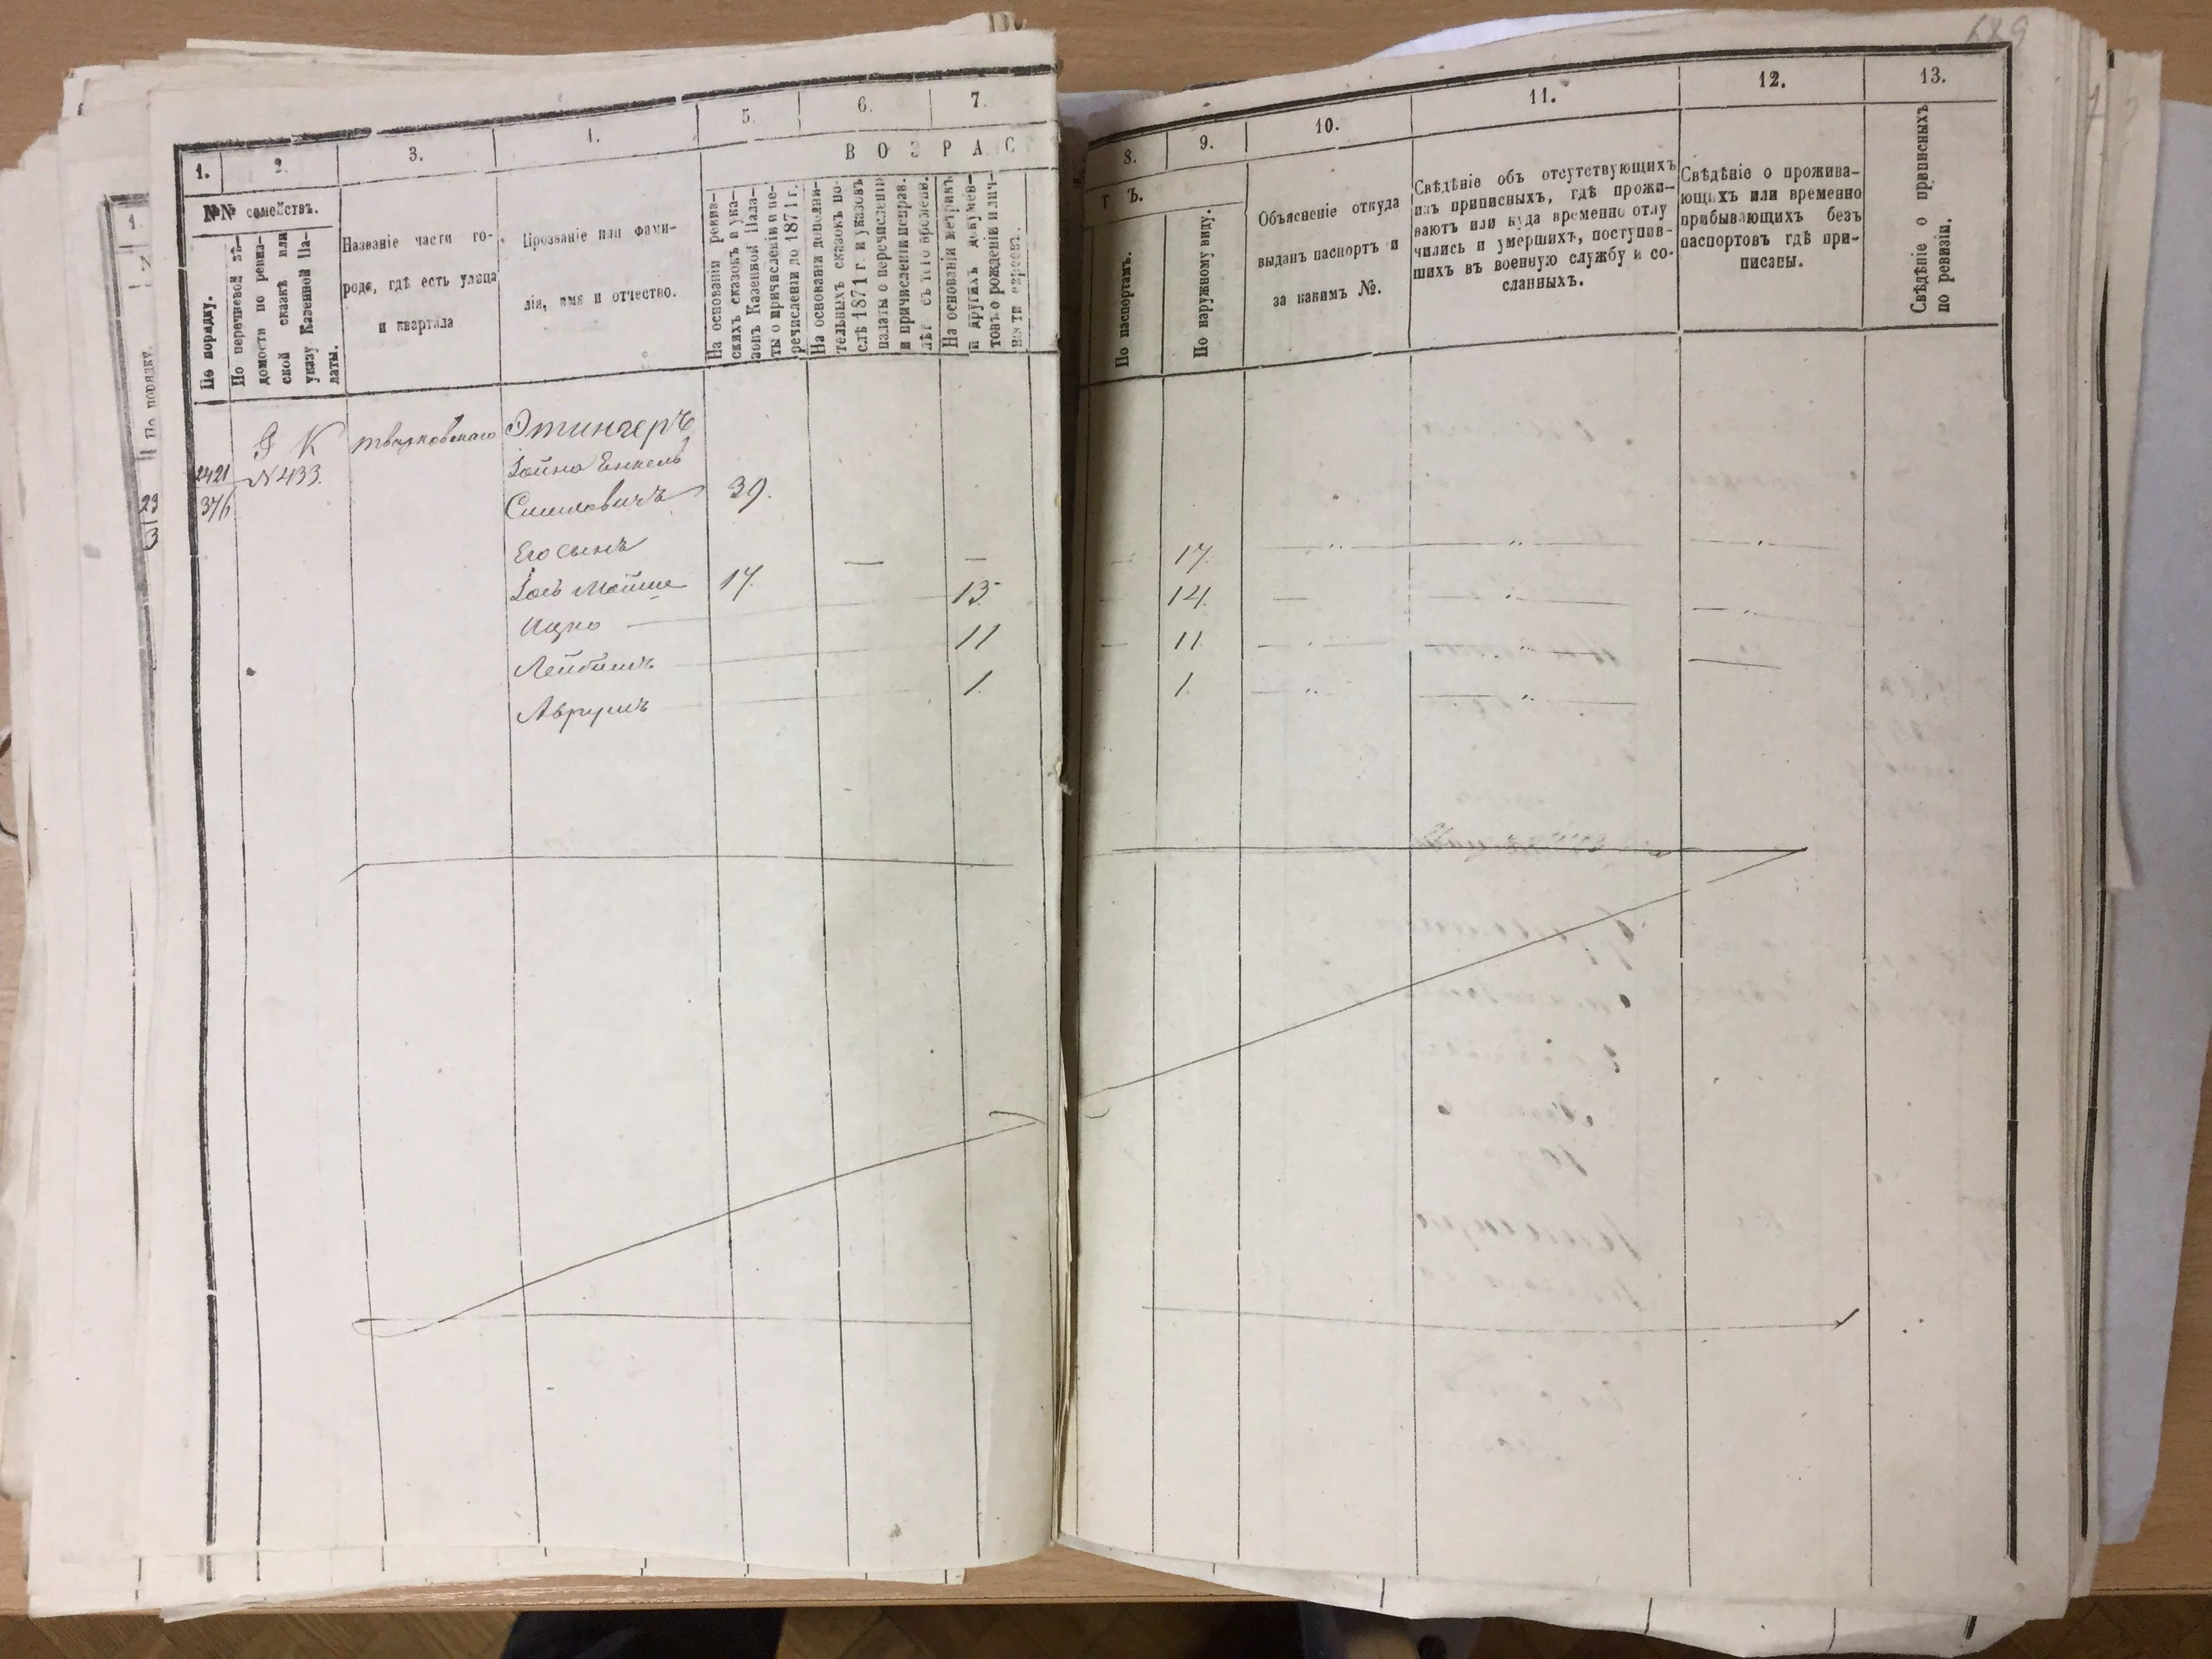 689
1.
2.
3.
4.
5.
6.
7.
В О З Р А С
№№ семействъ.
По порядку.
По перечневой вѣ-
домости по ревиз-
ской сказкѣ или
указу Казенной Па-
латы.
Названіе части го-
рода, гдѣ есть улица
и квартала
Прозваніе или фами-
лія, имя и отчество.
На основаніи ревиз-
скихъ сказокъ и ука-
зовъ Казенной Пала-
ты о причисленіи и пе-
речисленіи до 1871 г.
На основаніи дополни-
тельныхъ сказокъ по-
слѣ 1871 г. и указовъ
палаты о перечисленіи
и причисленіи исправ.
лѣт съ того времени.
На основаніи метрикъ
и другихъ докумен-
товъ о рожденіи и лич-
ности евреевъ.
8.
9.
10.
11.
12.
13.
Т Ъ.
По паспортамъ.
По наружному виду.
Объясненіе откуда
выданъ паспортъ и
за какимъ №.
Свѣдѣніе объ отсутствующихъ
изъ приписныхъ, гдѣ прожи-
ваютъ или куда временно отлу
чились и умершихъ, поступив-
шихъ въ военную службу и со-
сланныхъ.
Свѣдѣніе о прожива-
ющихъ или временно
прибывающихъ безъ
паспортовъ гдѣ при-
писаны.
Свѣдѣніе о приписныхъ
по ревизіи.
Этингеръ
2421 N 433.
376
39.
Его сынъ
17.
Іось Мойше 17.
Ицко 15 14.
Лейбишъ 11 11.
Аврумъ 1. 1.
1.
По порядку.